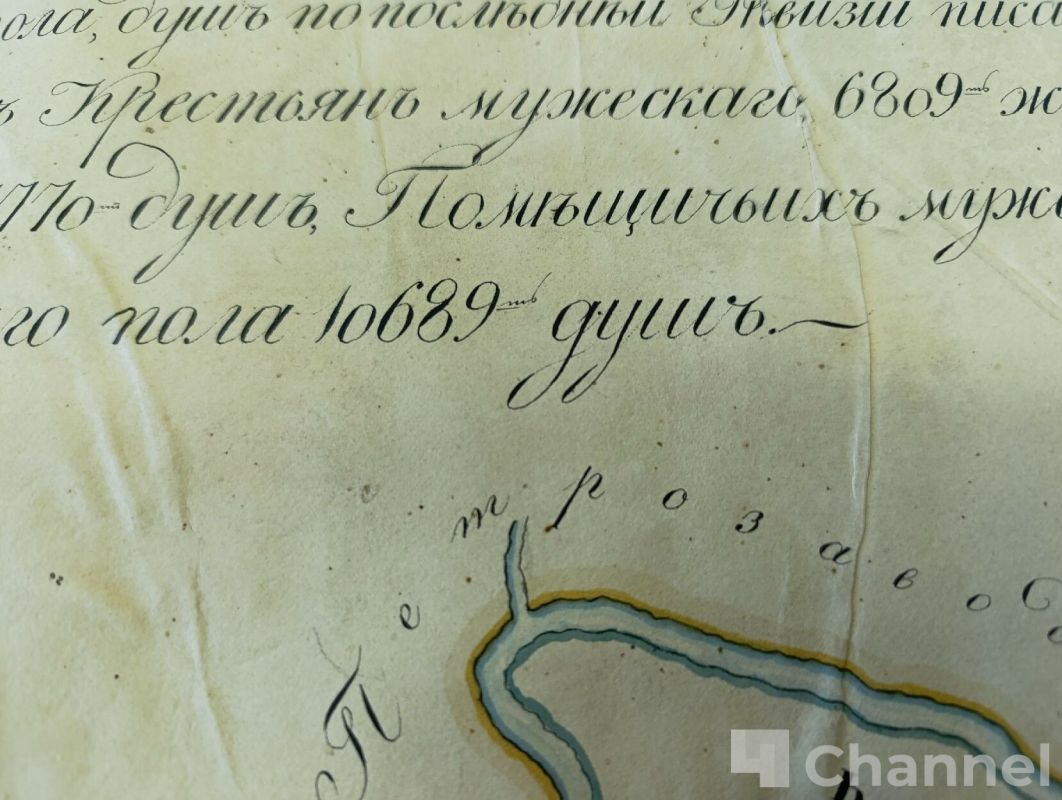 ола, душъ по последнѣй Ревизіи писа
ъ Крестьянъ мужескаго, 6809ть ж
770ть душъ, Помѣщичьихъ муже
го пола 10689ть душъ.
Петрозавод
Channel